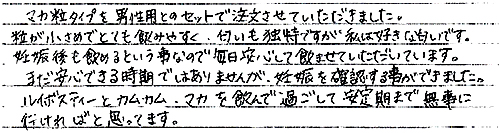 マカ粒タイプを男性用とのセットで注文させていただきました。
粒が小さめでとても飲みやすく、匂いも独特ですが私は好きな匂いです。
妊娠後も飲めるという事なので毎日安心して飲ませていただいています。
まだ安心できる時期ではありませんが、妊娠を確認する事ができました。
ルイボスティーとカムカム、マカを飲んで過ごして安定期まで無事に
行ければと思ってます。